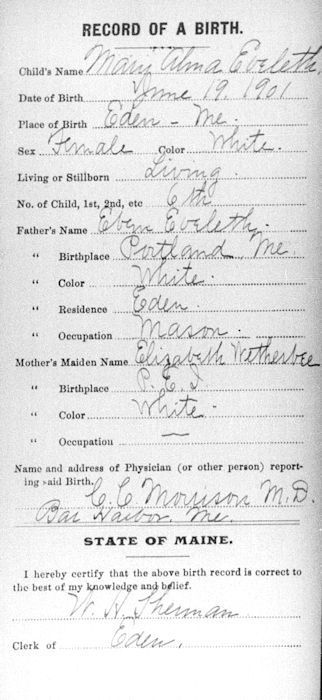 RECORD OF A BIRTH.
Child's Name Mary Alma Eveleth.
Date of Birth June 19, 1901
Place of Birth Eden - Me.
Sex Female Color White.
Living or Stillborn Living.
No. of Child, 1st, 2nd, etc 6th
Father's Name Eben Eveleth.
" Birthplace Portland, Me
" Color White.
" Residence Eden.
" Occupation Mason.
Mother's Maiden Name Elizabeth Wetherbee
" Birthplace P. E. I
" Color White.
" Occupation —
Name and address of Physician (or other person) report-
ing said Birth.
C. C. Morrison M. D.
Bar Harbor, Me.
STATE OF MAINE.
I hereby certify that the above birth record is correct to
the best of my knowledge and belief.
W. H. Sherman
Clerk of Eden.